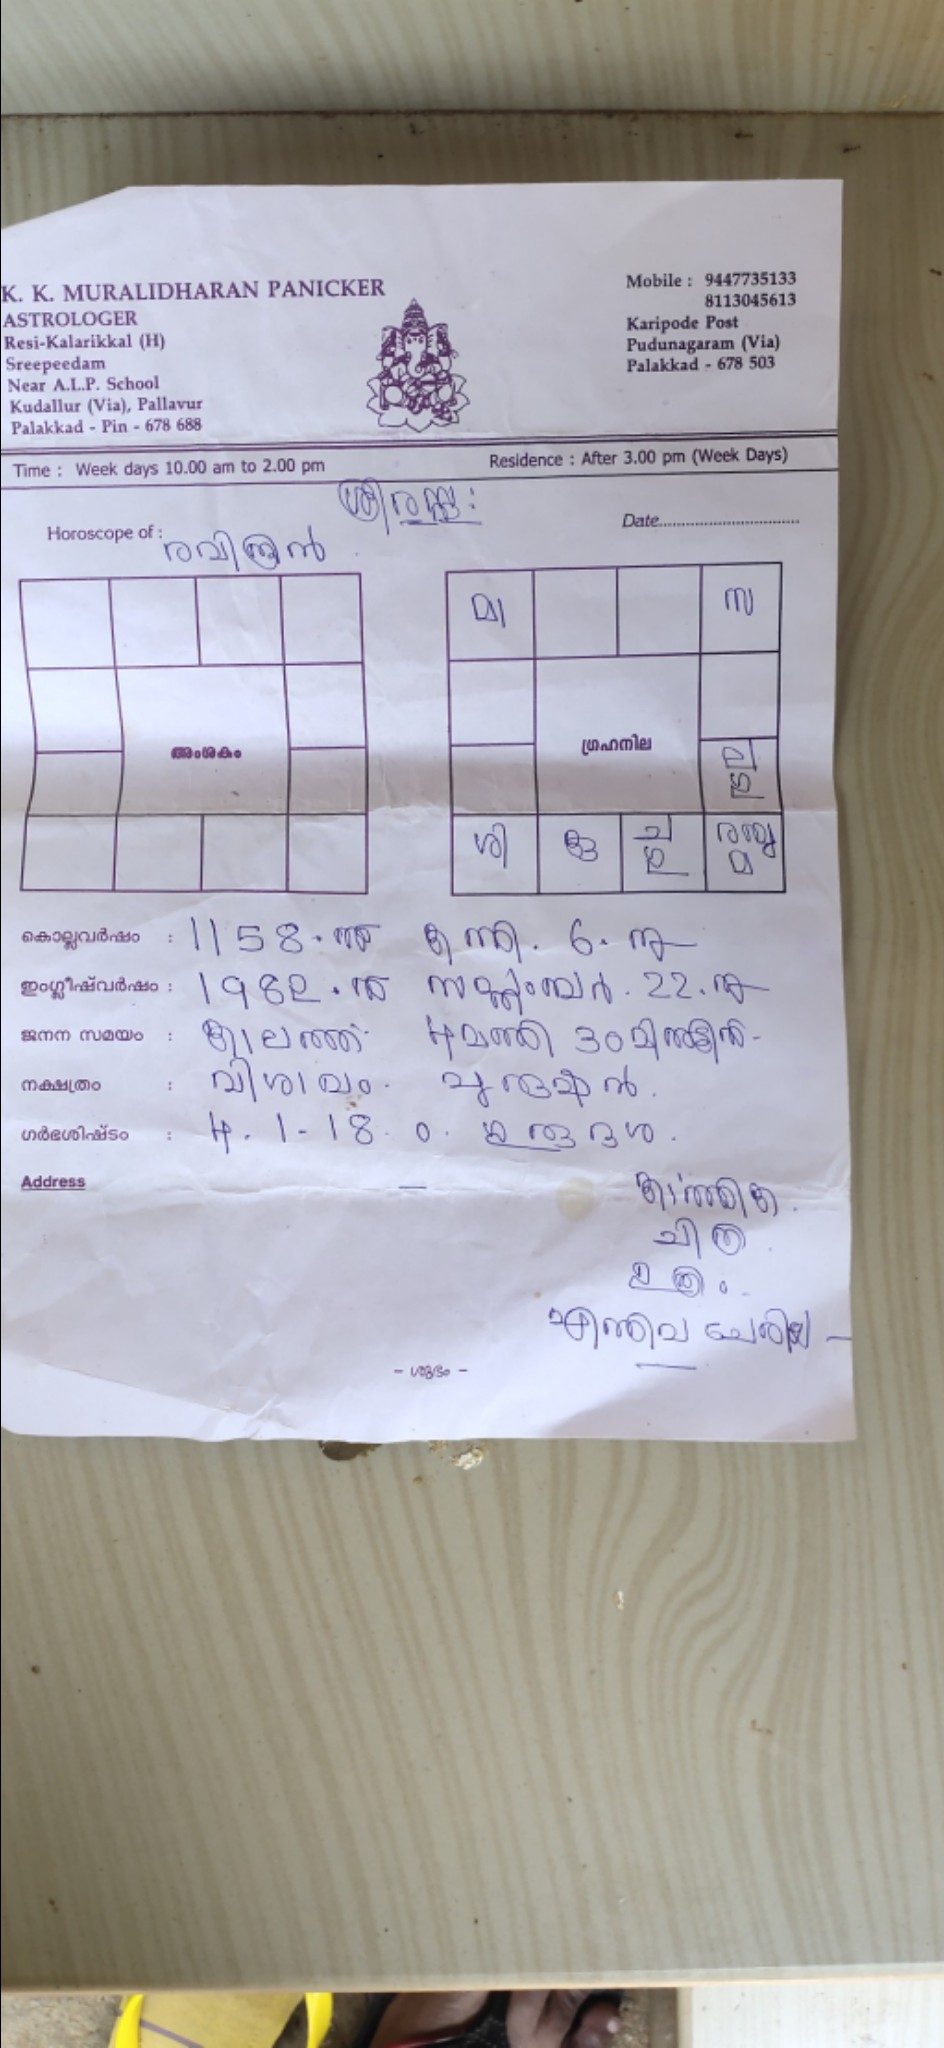 K. K. MURALIDHARAN PANICKER
ASTROLOGER
Resi-Kalarikkal (H)
Sreepeedam
Near A.L.P. School
Kudallur (Via), Pallavur
Palakkad - Pin - 678 688
Mobile : 9447735133
8113045613
Karipode Post
Pudunagaram (Via)
Palakkad - 678 503
Time : Week days 10.00 am to 2.00 pm
Residence : After 3.00 pm (Week Days)
Date
Horoscope of :
അംശകം
മാ
സ
ഗ്രഹനില
ശി
കൊല്ലവർഷം : 1158 കന്നി. 6.
ഇംഗ്ലീഷ്‌വർഷം : 1982 22.
ജനന സമയം : കാലത്ത് 4മണി
നക്ഷത്രം : വിശാഖം. പുരുഷൻ.
ഗർഭശിഷ്ടം : 4. 1-18. 0.
Address
കാർത്തിക.
ചിത്ര
എന്നിവ
- ശുഭം -